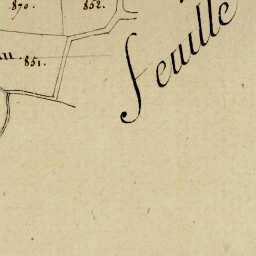 870.
852.
851.
feuille